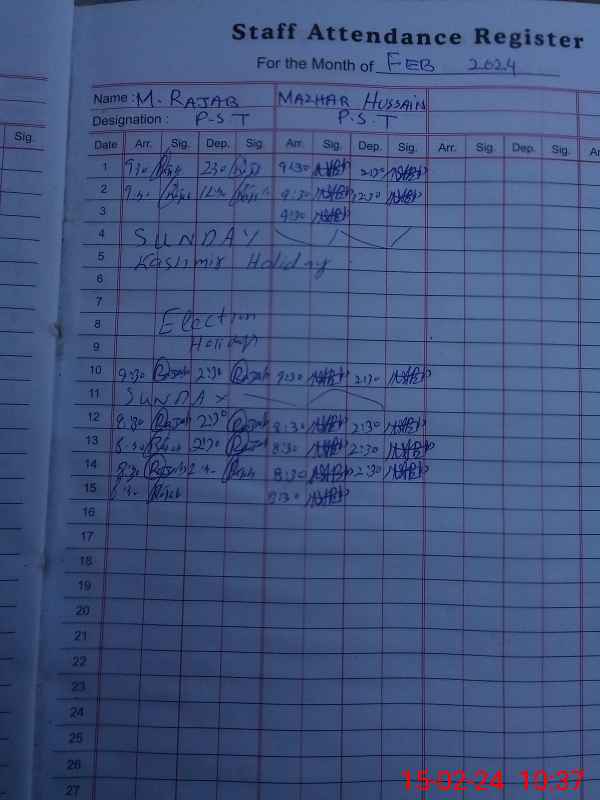 Staff Attendance Register
For the Month of FEB 2024
Sig.
Name : M. RAJAB MAZHAR HUSSAIN
Designation : P-S-T P.S.T
Date Arr. Sig. Dep. Sig. Arr. Sig. Dep. Sig. Arr. Sig. Dep. Sig.
1 9:30 2:30 9:30 2:30
2 9:30 12:30 9:30 12:30
3 9:30
4 SUNDAY
5 Kashmir Holiday
6
7
8 Election
9 Holiday
10 9:30 Rajab 2:30 Rajab 9:30 2:30
11 SUNDAY
12 8:30 Rajab 2:30 Rajab 8:30 2:30
13 8:30 Rajab 2:30 Rajab 8:30 2:30
14 8:30 Rajab Rajab 8:30 2:30
15 Rajab 8:30
16
17
18
19
20
21
22
23
24
25
26
27
15-02-24 10:37